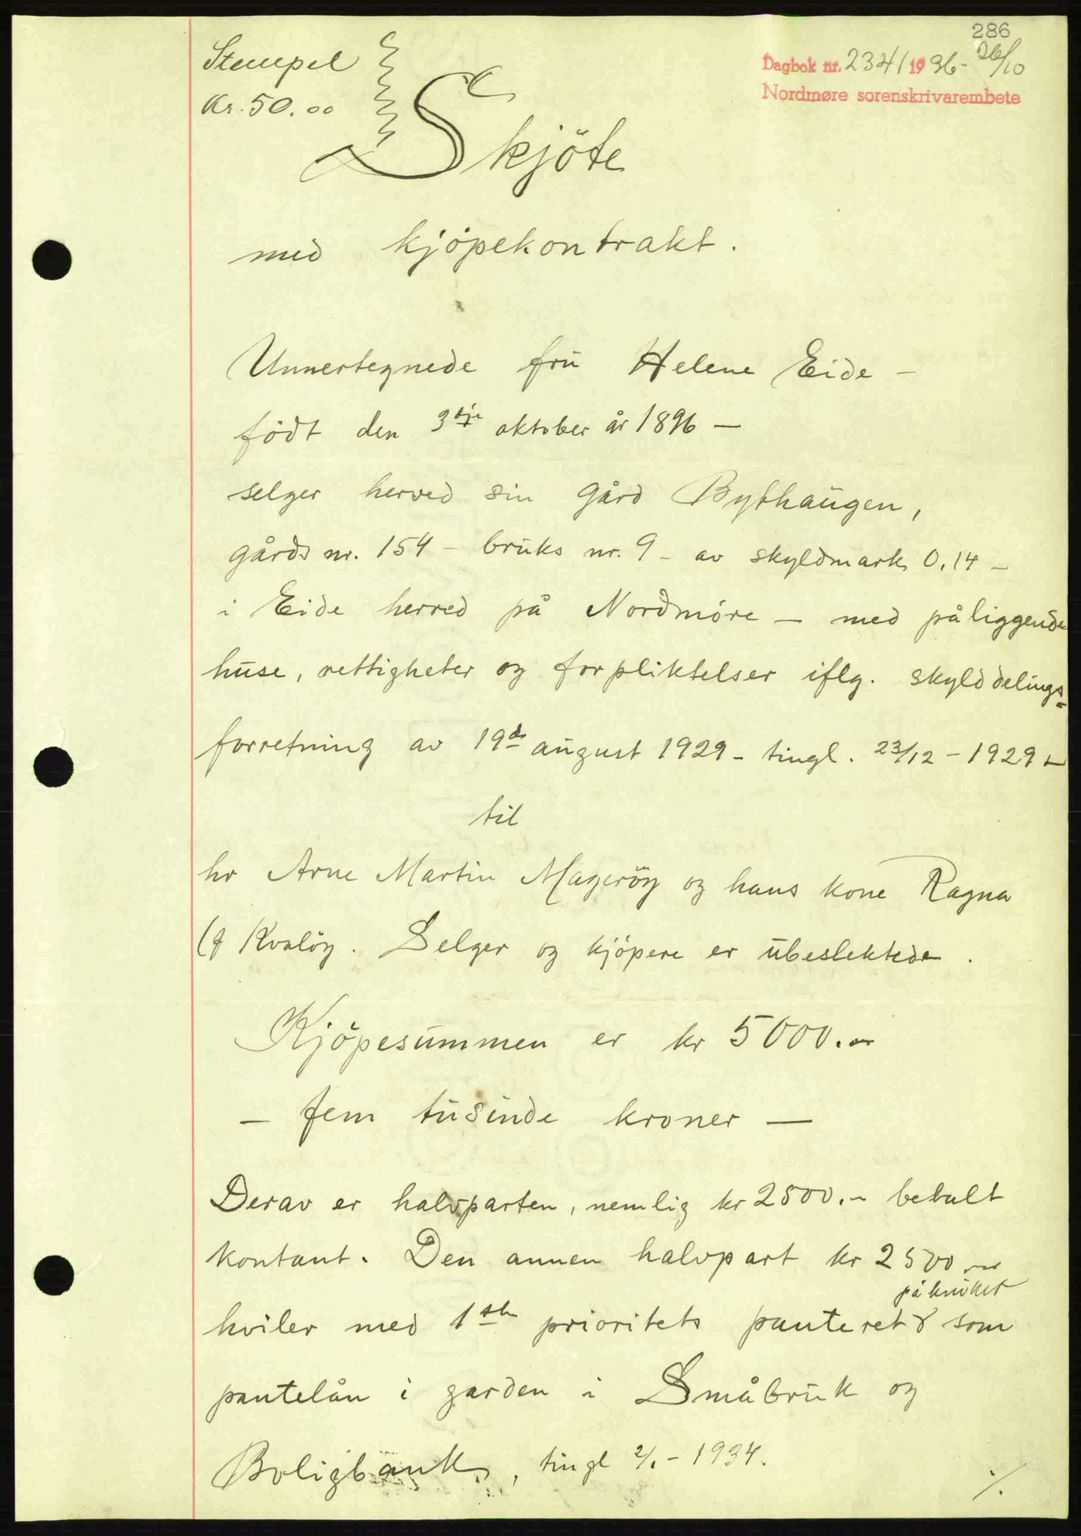 286
Stempel
Kr. 50.00
Dagbok nr. 2341 1936 - 26/10
Nordmøre sorenskrivarembete
Skjöte
med kjöpekontrakt.
Unnertegnede frü Helene Eide —
födt den 3dje oktober år 1896 —
selger herved sin gård Bythaügen,
gårds nr. 154 - brüks nr. 9 - av skyldmark 0,14 -
i Eide herred på Nordmöre — med påliggende
hüse, rettigheter og forpliktelser iflg. skylddelings=
forretning av 19de aügust 1929 - tingl. 23/12 - 1929 -
til
hr Arne Martin Mageröy og hans kone Ragna
(f Kvalöy. Selger og kjöpere er übeslektede.
Kjöpesümmen er kr 5000.-
— fem tüsinde kroner —
Derav er halvparten, nemlig kr 2500.- betalt
kontant. Den annen halvpart kr 2500.-
på brüket
hviler med 1ste prioritets panterett som
pantelån i garden i Småbrük og
Boligbank, tingl 2/1 - 1934.
./.